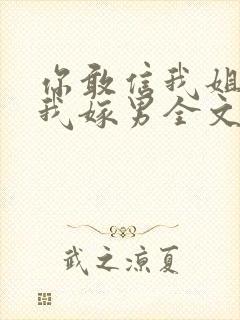 你敢信我姐
我嫁男全文
武之凉夏